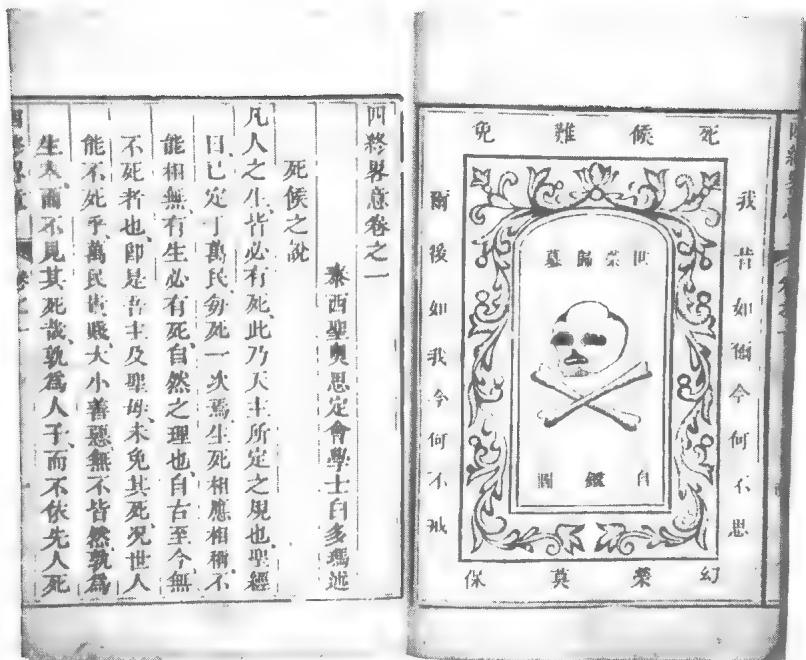 死候難免
我昔如爾今何不思
爾後如我今何不戒
幻榮莫保
世榮歸墓
自鑑圖
四終畧意卷之一
泰西聖奧思定會學士白多瑪述
死候之說
凡人之生皆必有死此乃天主所定之規也聖經
曰已定于萬民每死一次焉生死相應相稱不
能相無有生必有死自然之理也自古至今無
不死者也即是吾主及聖母未免其死況世人
能不死乎萬民貴賤大小善惡無不皆然孰爲
生人而不見其死哉孰爲人子而不依先人死